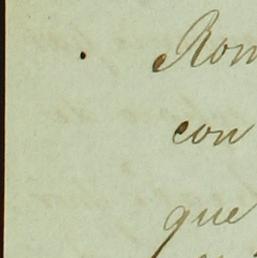 Rom
con
que